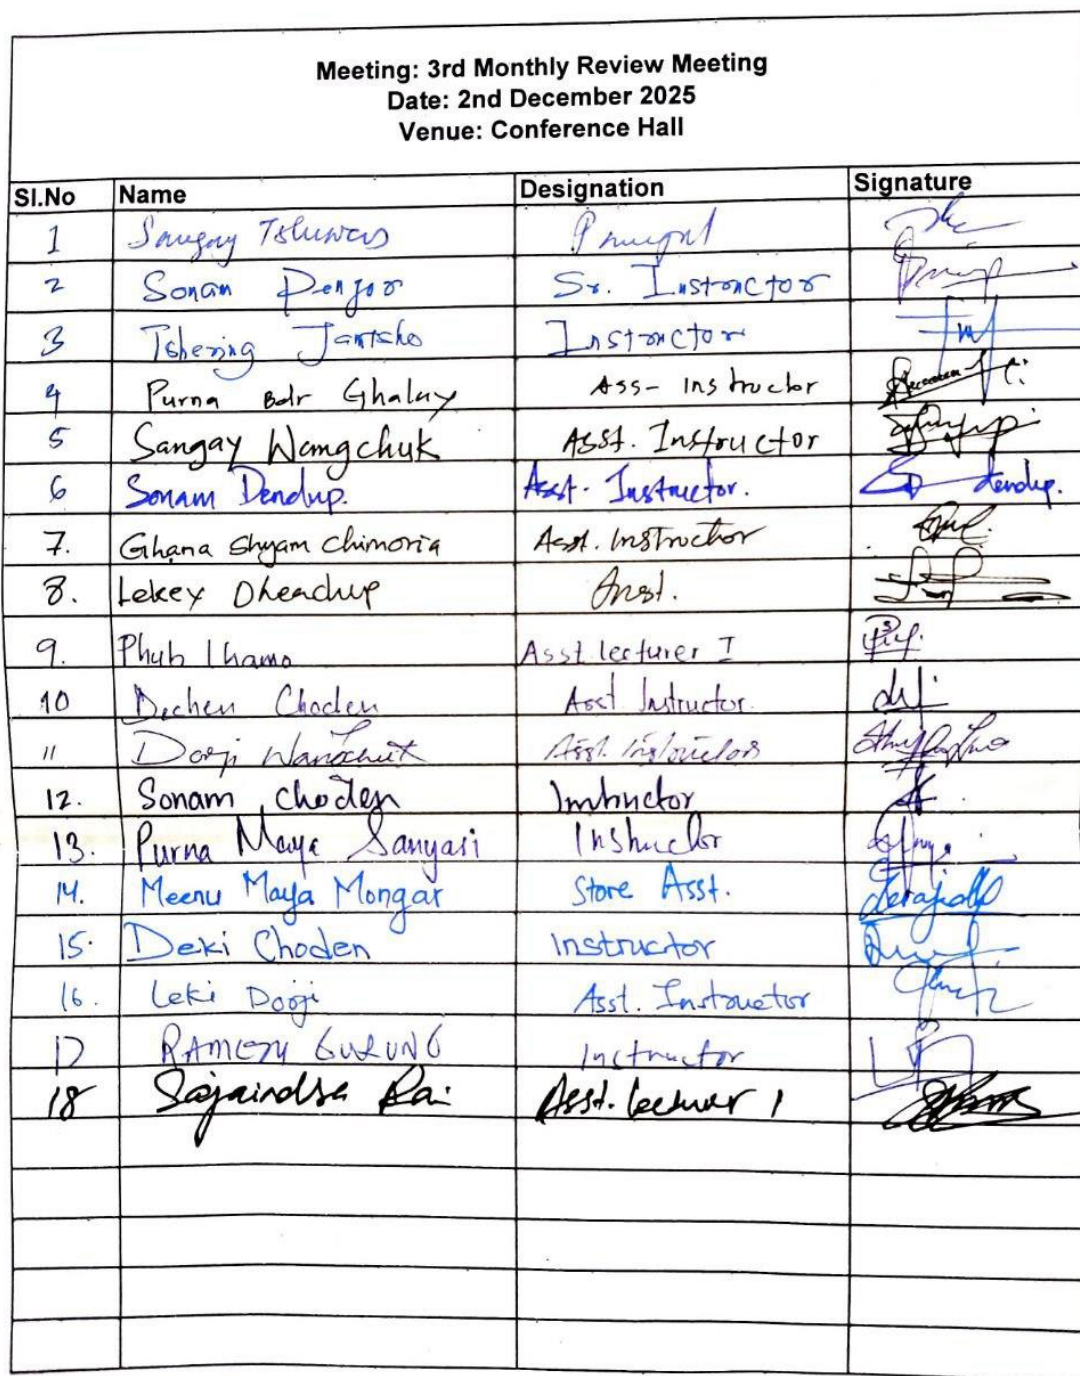 Meeting: 3rd Monthly Review Meeting
Date: 2nd December 2025
Venue: Conference Hall
Sl.No Name Designation Signature
1 Sangay Principal
2 Sonam Penjor Sr. Instructor
3 Tshering Jamtsho Instructor
4 Purna Bdr Ghalay Ass- Instructor
5 Sangay Wangchuk Asst. Instructor
6 Sonam Dendup. Asst. Instructor. dendup.
7. Ghana Shyam Chimoria Asst. Instructor
8. Lekey Dhendup Inst.
9. Phub Lhamo Asst lecturer I
10 Dechen Choden Asst Instructor.
11 Dorji Wangchuk Asst. Instructor
12. Sonam choden Instructor
13. Purna Maya Sanyasi Instructor
14. Meenu Maya Mongar Store Asst.
15. Deki Choden Instructor
16. Leki Dorji Asst. Instructor
17 RAMESH GURUNG Instructor
18 Rai Asst. Lecturer 1